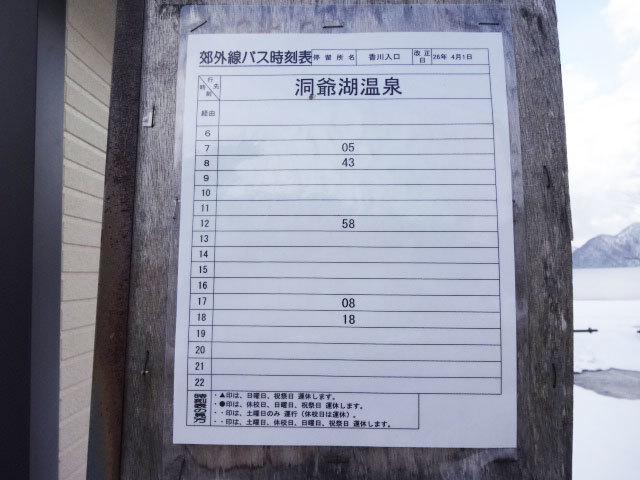 郊外線バス時刻表 停留所名 香川入口 改正日 26年 4月1日
行先 時前 洞爺湖温泉
経由
6
7 05
8 43
9
10
11
12 58
13
14
15
16
17 08
18 18
19
20
21
22
時刻表の見方
・▲印は、日曜日、祝祭日 運休します。
・●印は、休校日、日曜日、祝祭日 運休します。
・・印は、土曜日のみ 運行(休校日は運休)。
・・印は、土曜日、休校日、日曜日、祝祭日 運休します。